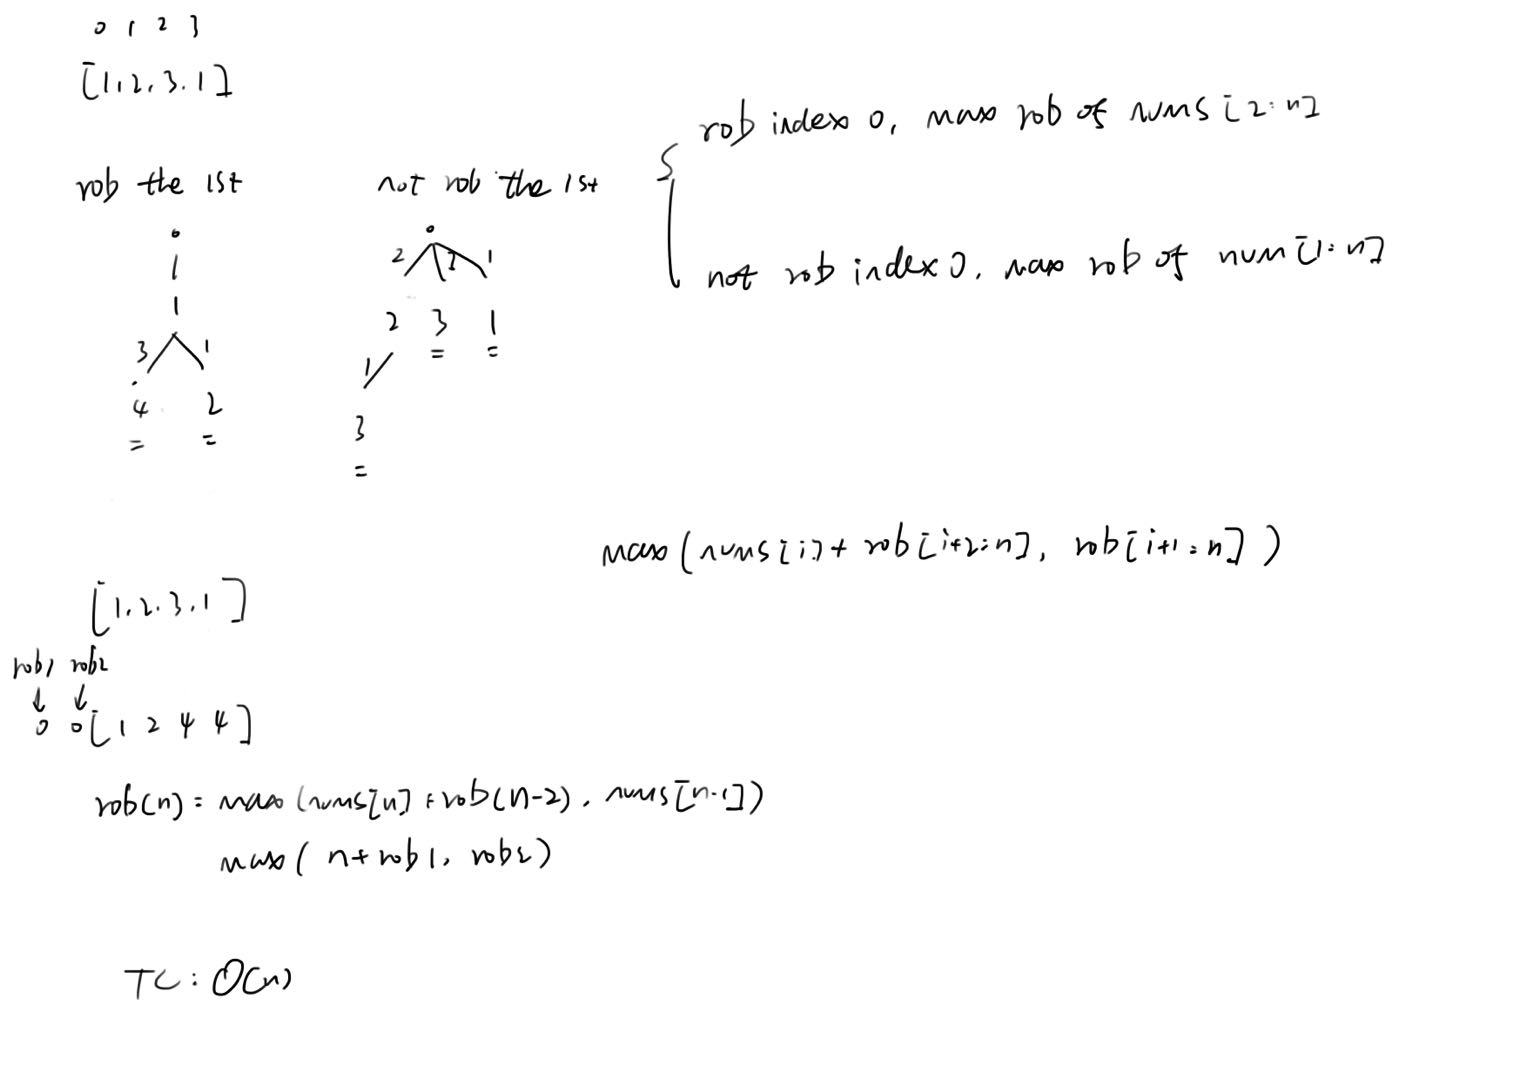 0 1 2 3
[1,2,3,1]
rob the 1st
1
1
3 1
4 2
= =
not rob the 1st
0
2 3 1
2 3 1
= =
1
3
=
rob index 0, max rob of nums [2:n]
not rob index 0, max rob of num[1:n]
max(nums[i]+rob[i+2:n], rob[i+1:n])
[1,2,3,1]
rob1 rob2
↓ ↓
0 0[1 2 4 4]
rob(n)= max(nums[n]+rob(n-2), nums[n-1])
max( n+rob1, rob2)
TC: O(n)